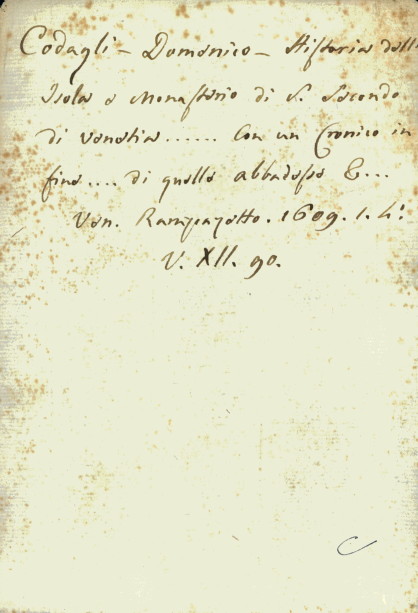 Codagli - Domenico - Historia dell
Isola e Monasterio di S. Secondo
di Venetia ...... Con un Cronico in
fine .... di quelle abbadesse &...
Ven. Rampazetto. 1609. 1. 4.º
V. XII. 90.
C